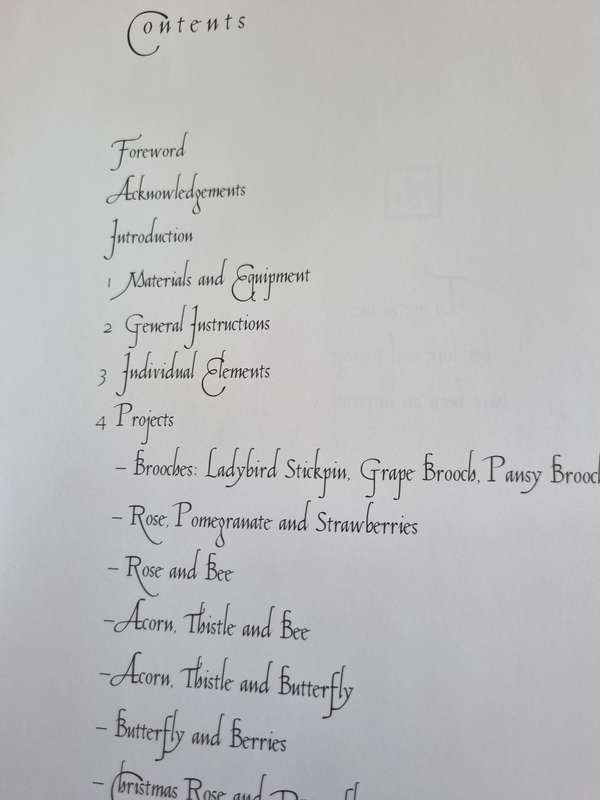 Contents
Foreword
Acknowledgements
Introduction
1 Materials and Equipment
2 General Instructions
3 Individual Elements
4 Projects
– Brooches: Ladybird Stickpin, Grape Brooch, Pansy Brooc
– Rose, Pomegranate and Strawberries
– Rose and Bee
– Acorn, Thistle and Bee
– Acorn, Thistle and Butterfly
– Butterfly and Berries
– Christmas Rose and